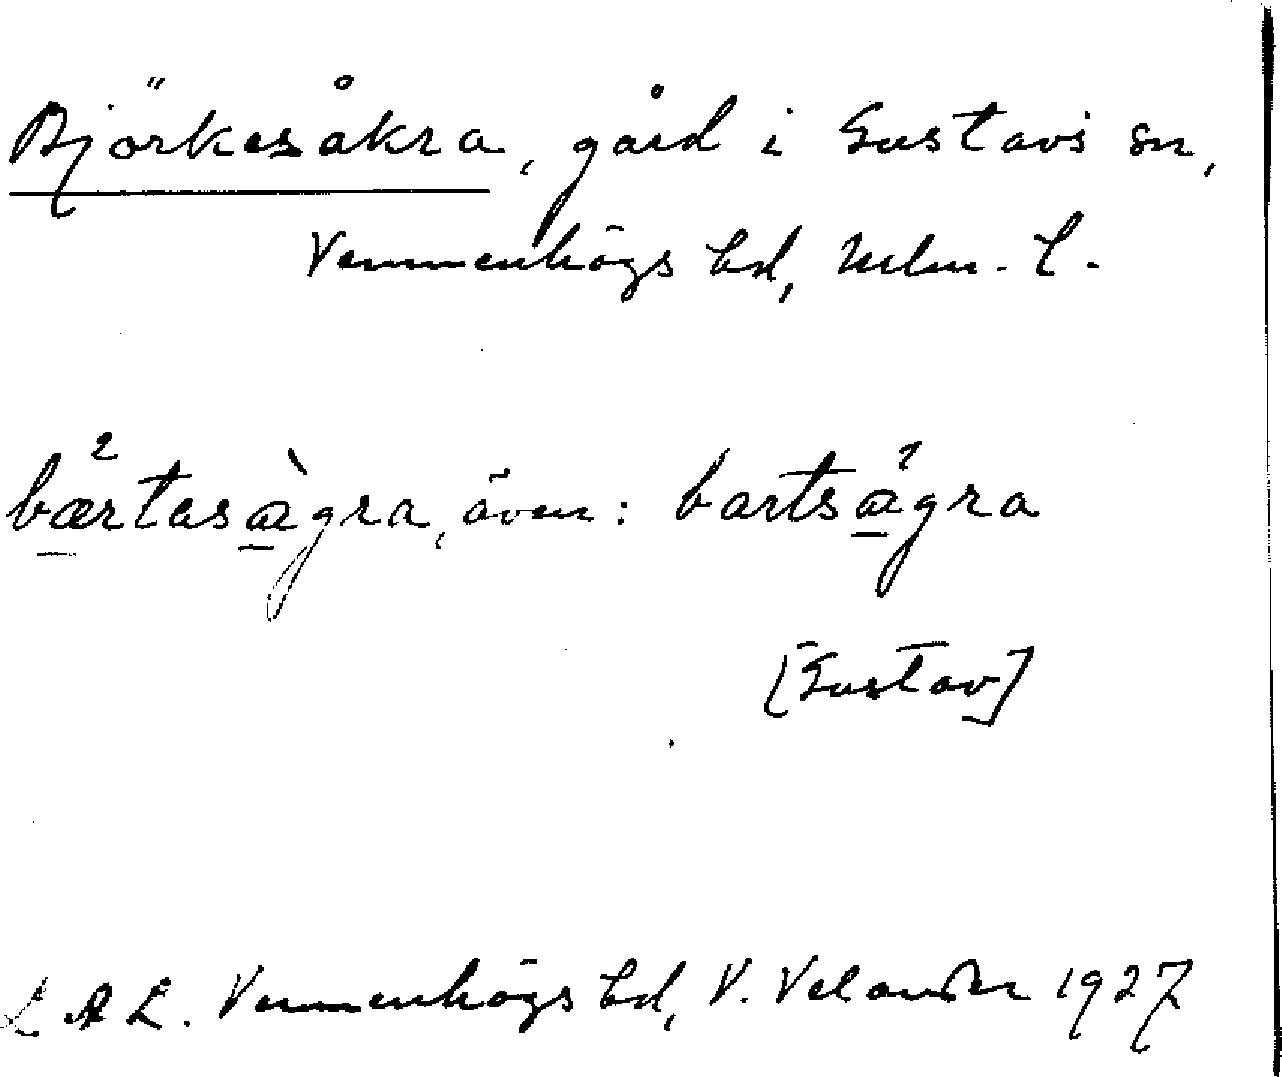 Björkesåkra, gård i Gustavs sn,
Vemmenhögs hd, Mlm. l.
bærtasàgra, även: bartsagra
[Gustav]
L A L. Vemmenhögs hd, V. Velander 1927